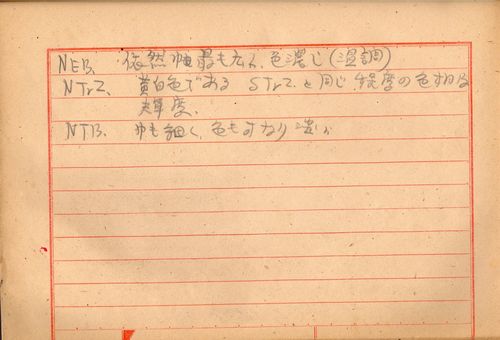 NEB. 依然巾最も広く、色濃し(温調)
NTrZ. 黄白色である STrZ. と同じ程度の色及
輝度.
NTB. 巾も細く、色もかなり淡い